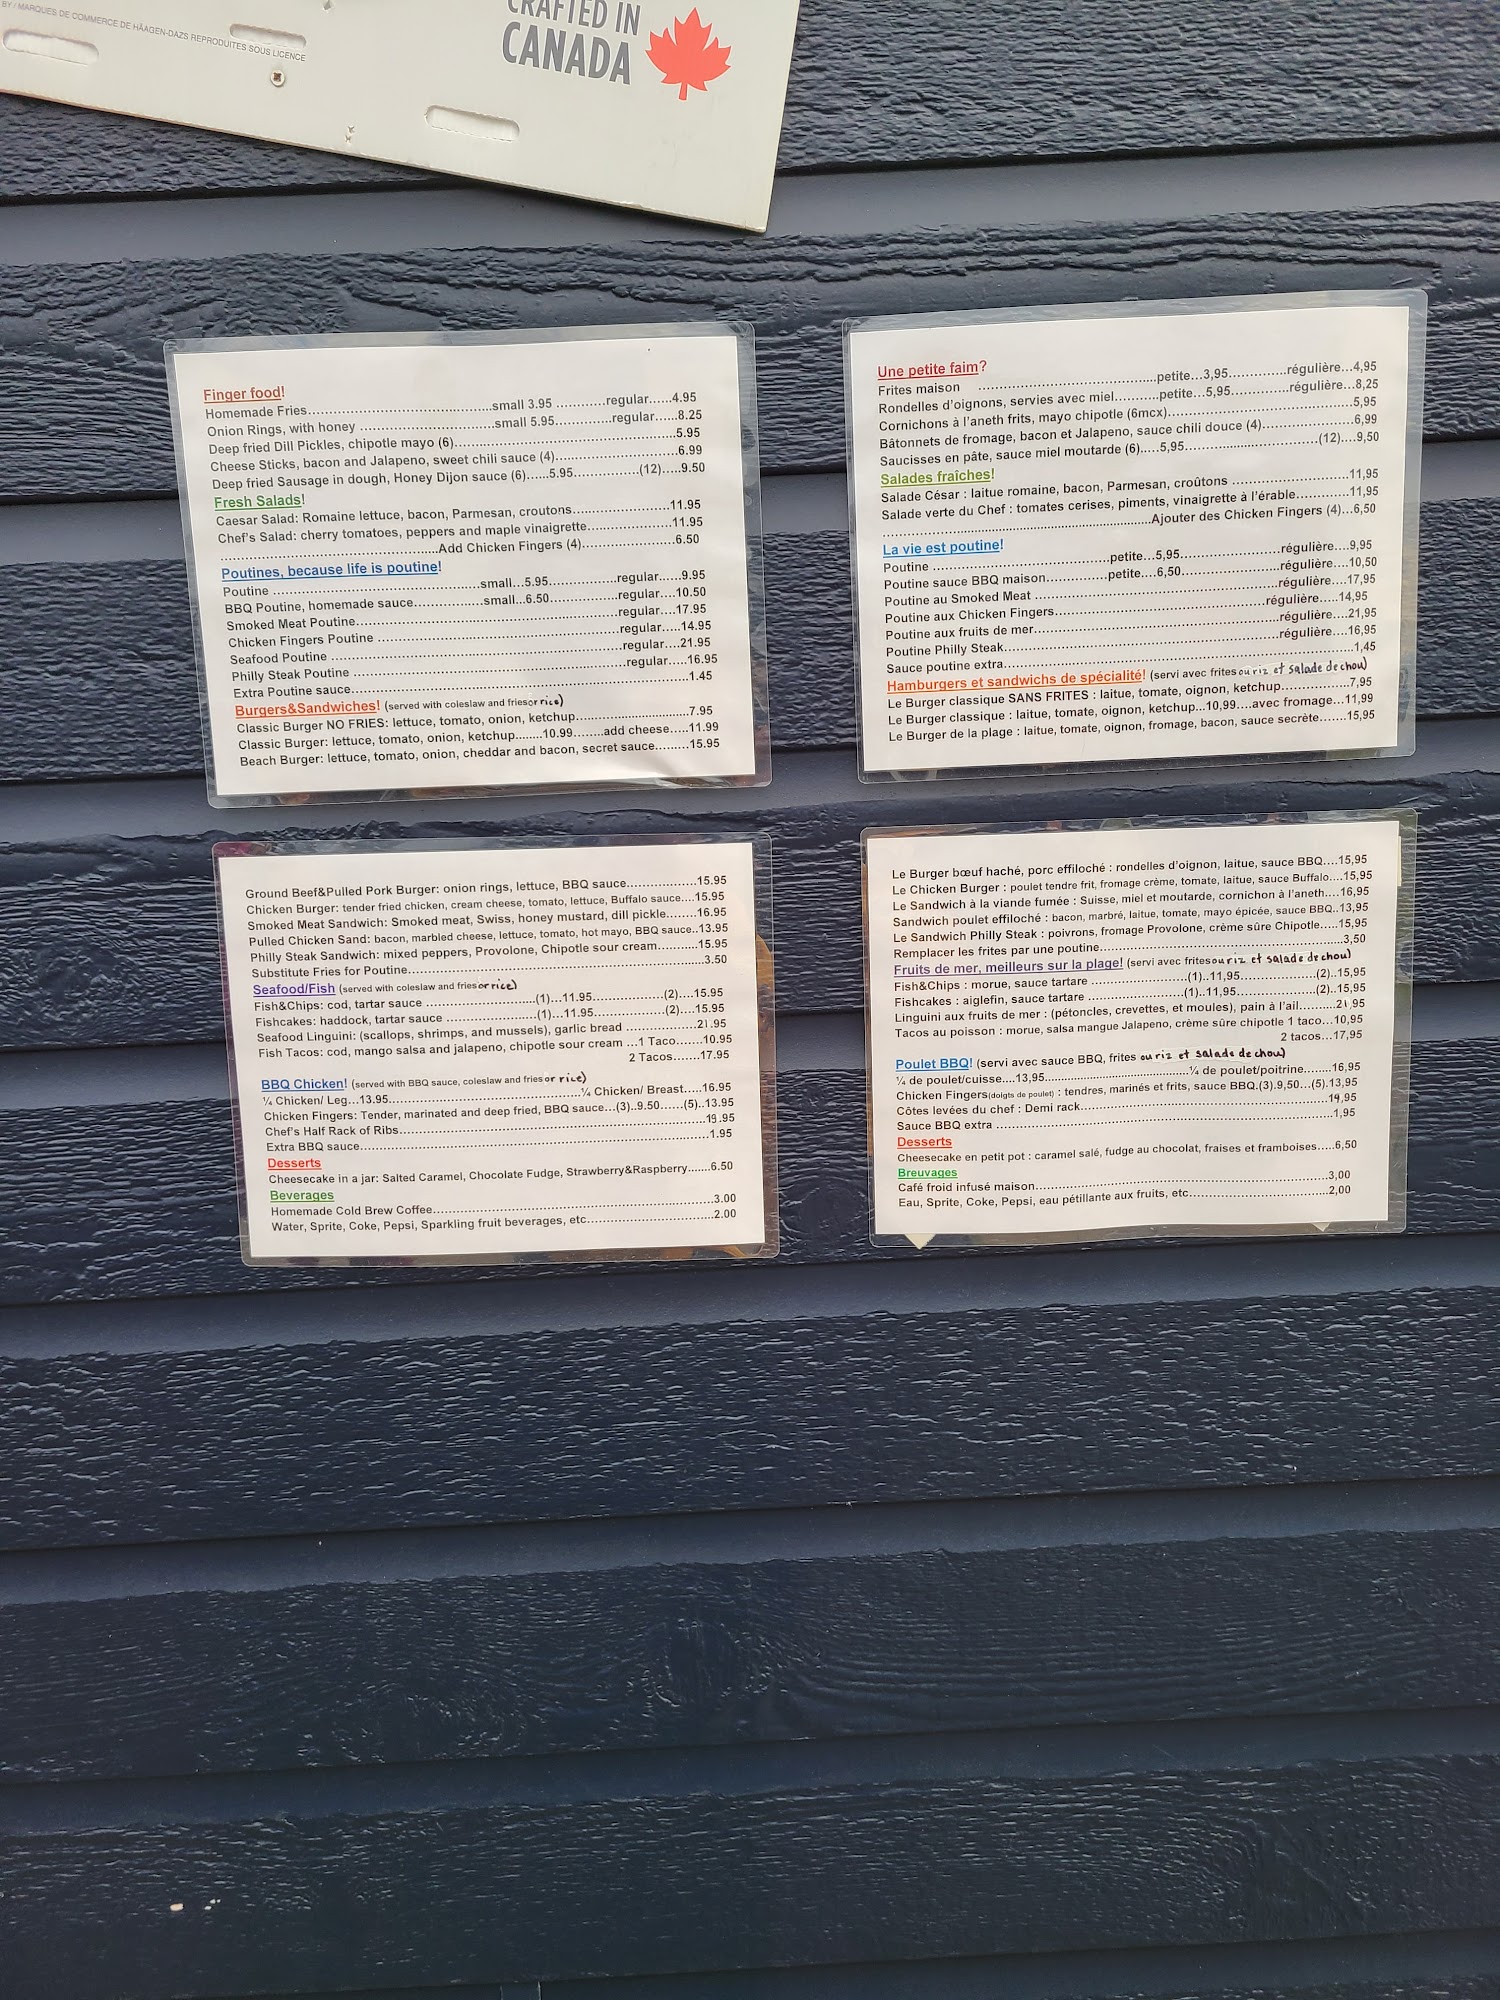 BY / MARQUES DE COMMERCE DE HÄAGEN-DAZS REPRODUITES SOUS LICENCE
CRAFTED IN
CANADA
Finger food!
Homemade Fries...small 3.95...regular...4.95
Onion Rings, with honey...small 5.95...regular...8.25
Deep fried Dill Pickles, chipotle mayo (6)...5.95
Cheese Sticks, bacon and Jalapeno, sweet chili sauce (4)...6.99
Deep fried Sausage in dough, Honey Dijon sauce (6)...5.95...(12)...9.50
Fresh Salads!
Caesar Salad: Romaine lettuce, bacon, Parmesan, croutons...11.95
Chef's Salad: cherry tomatoes, peppers and maple vinaigrette...11.95
...Add Chicken Fingers (4)...6.50
Poutines, because life is poutine!
Poutine...small...5.95...regular...9.95
BBQ Poutine, homemade sauce...small...6.50...regular...10.50
Smoked Meat Poutine...regular...17.95
Chicken Fingers Poutine...regular...14.95
Seafood Poutine...regular...21.95
Philly Steak Poutine...regular...16.95
Extra Poutine sauce...1.45
Burgers&Sandwiches! (served with coleslaw and fries or rice)
Classic Burger NO FRIES: lettuce, tomato, onion, ketchup...7.95
Classic Burger: lettuce, tomato, onion, ketchup...10.99...add cheese...11.99
Beach Burger: lettuce, tomato, onion, cheddar and bacon, secret sauce...15.95
Une petite faim?
Frites maison...petite...3,95...régulière...4,95
Rondelles d'oignons, servies avec miel...petite...5,95...régulière...8,25
Cornichons à l'aneth frits, mayo chipotle (6mcx)...5,95
Bâtonnets de fromage, bacon et Jalapeno, sauce chili douce (4)...6,99
Saucisses en pâte, sauce miel moutarde (6)...5,95...(12)...9,50
Salades fraîches!
Salade César : laitue romaine, bacon, Parmesan, croûtons...11,95
Salade verte du Chef : tomates cerises, piments, vinaigrette à l'érable...11,95
...Ajouter des Chicken Fingers (4)...6,50
La vie est poutine!
Poutine...petite...5,95...régulière...9,95
Poutine sauce BBQ maison...petite...6,50...régulière...10,50
Poutine au Smoked Meat...régulière...17,95
Poutine aux Chicken Fingers...régulière...14,95
Poutine aux fruits de mer...régulière...21,95
Poutine Philly Steak...régulière...16,95
Sauce poutine extra...1,45
Hamburgers et sandwichs de spécialité! (servi avec frites ou riz et salade de chou)
Le Burger classique SANS FRITES : laitue, tomate, oignon, ketchup...7,95
Le Burger classique : laitue, tomate, oignon, ketchup...10,99...avec fromage...11,99
Le Burger de la plage : laitue, tomate, oignon, fromage, bacon, sauce secrète...15,95
Ground Beef&Pulled Pork Burger: onion rings, lettuce, BBQ sauce...15.95
Chicken Burger: tender fried chicken, cream cheese, tomato, lettuce, Buffalo sauce...15.95
Smoked Meat Sandwich: Smoked meat, Swiss, honey mustard, dill pickle...16.95
Pulled Chicken Sand: bacon, marbled cheese, lettuce, tomato, hot mayo, BBQ sauce..13.95
Philly Steak Sandwich: mixed peppers, Provolone, Chipotle sour cream...15.95
Substitute Fries for Poutine...3.50
Seafood/Fish (served with coleslaw and fries or rice)
Fish&Chips: cod, tartar sauce...(1)...11.95...(2)...15.95
Fishcakes: haddock, tartar sauce...(1)...11.95...(2)...15.95
Seafood Linguini: (scallops, shrimps, and mussels), garlic bread...21.95
Fish Tacos: cod, mango salsa and jalapeno, chipotle sour cream...1 Taco...10.95
2 Tacos...17.95
BBQ Chicken! (served with BBQ sauce, coleslaw and fries or rice)
¼ Chicken/ Leg...13.95...¼ Chicken/ Breast...16.95
Chicken Fingers: Tender, marinated and deep fried, BBQ sauce...(3)..9.50...(5)..13.95
Chef's Half Rack of Ribs...19.95
Extra BBQ sauce...1.95
Desserts
Cheesecake in a jar: Salted Caramel, Chocolate Fudge, Strawberry&Raspberry...6.50
Beverages
Homemade Cold Brew Coffee...3.00
Water, Sprite, Coke, Pepsi, Sparkling fruit beverages, etc...2.00
Le Burger bœuf haché, porc effiloché : rondelles d'oignon, laitue, sauce BBQ...15,95
Le Chicken Burger : poulet tendre frit, fromage crème, tomate, laitue, sauce Buffalo...15,95
Le Sandwich à la viande fumée : Suisse, miel et moutarde, cornichon à l'aneth...16,95
Sandwich poulet effiloché : bacon, marbré, laitue, tomate, mayo épicée, sauce BBQ..13,95
Le Sandwich Philly Steak : poivrons, fromage Provolone, crème sûre Chipotle...15,95
Remplacer les frites par une poutine...3,50
Fruits de mer, meilleurs sur la plage! (servi avec frites ou riz et salade de chou)
Fish&Chips : morue, sauce tartare...(1)..11,95...(2)..15,95
Fishcakes : aiglefin, sauce tartare...(1)..11,95...(2)..15,95
Linguini aux fruits de mer : (pétoncles, crevettes, et moules), pain à l'ail...21,95
Tacos au poisson : morue, salsa mangue Jalapeno, crème sûre chipotle 1 taco...10,95
2 tacos...17,95
Poulet BBQ! (servi avec sauce BBQ, frites ou riz et salade de chou)
¼ de poulet/cuisse...13,95...¼ de poulet/poitrine...16,95
Chicken Fingers(doigts de poulet) : tendres, marinés et frits, sauce BBQ.(3).9,50...(5).13,95
Côtes levées du chef : Demi rack...19,95
Sauce BBQ extra...1,95
Desserts
Cheesecake en petit pot : caramel salé, fudge au chocolat, fraises et framboises...6,50
Breuvages
Café froid infusé maison...3,00
Eau, Sprite, Coke, Pepsi, eau pétillante aux fruits, etc...2,00